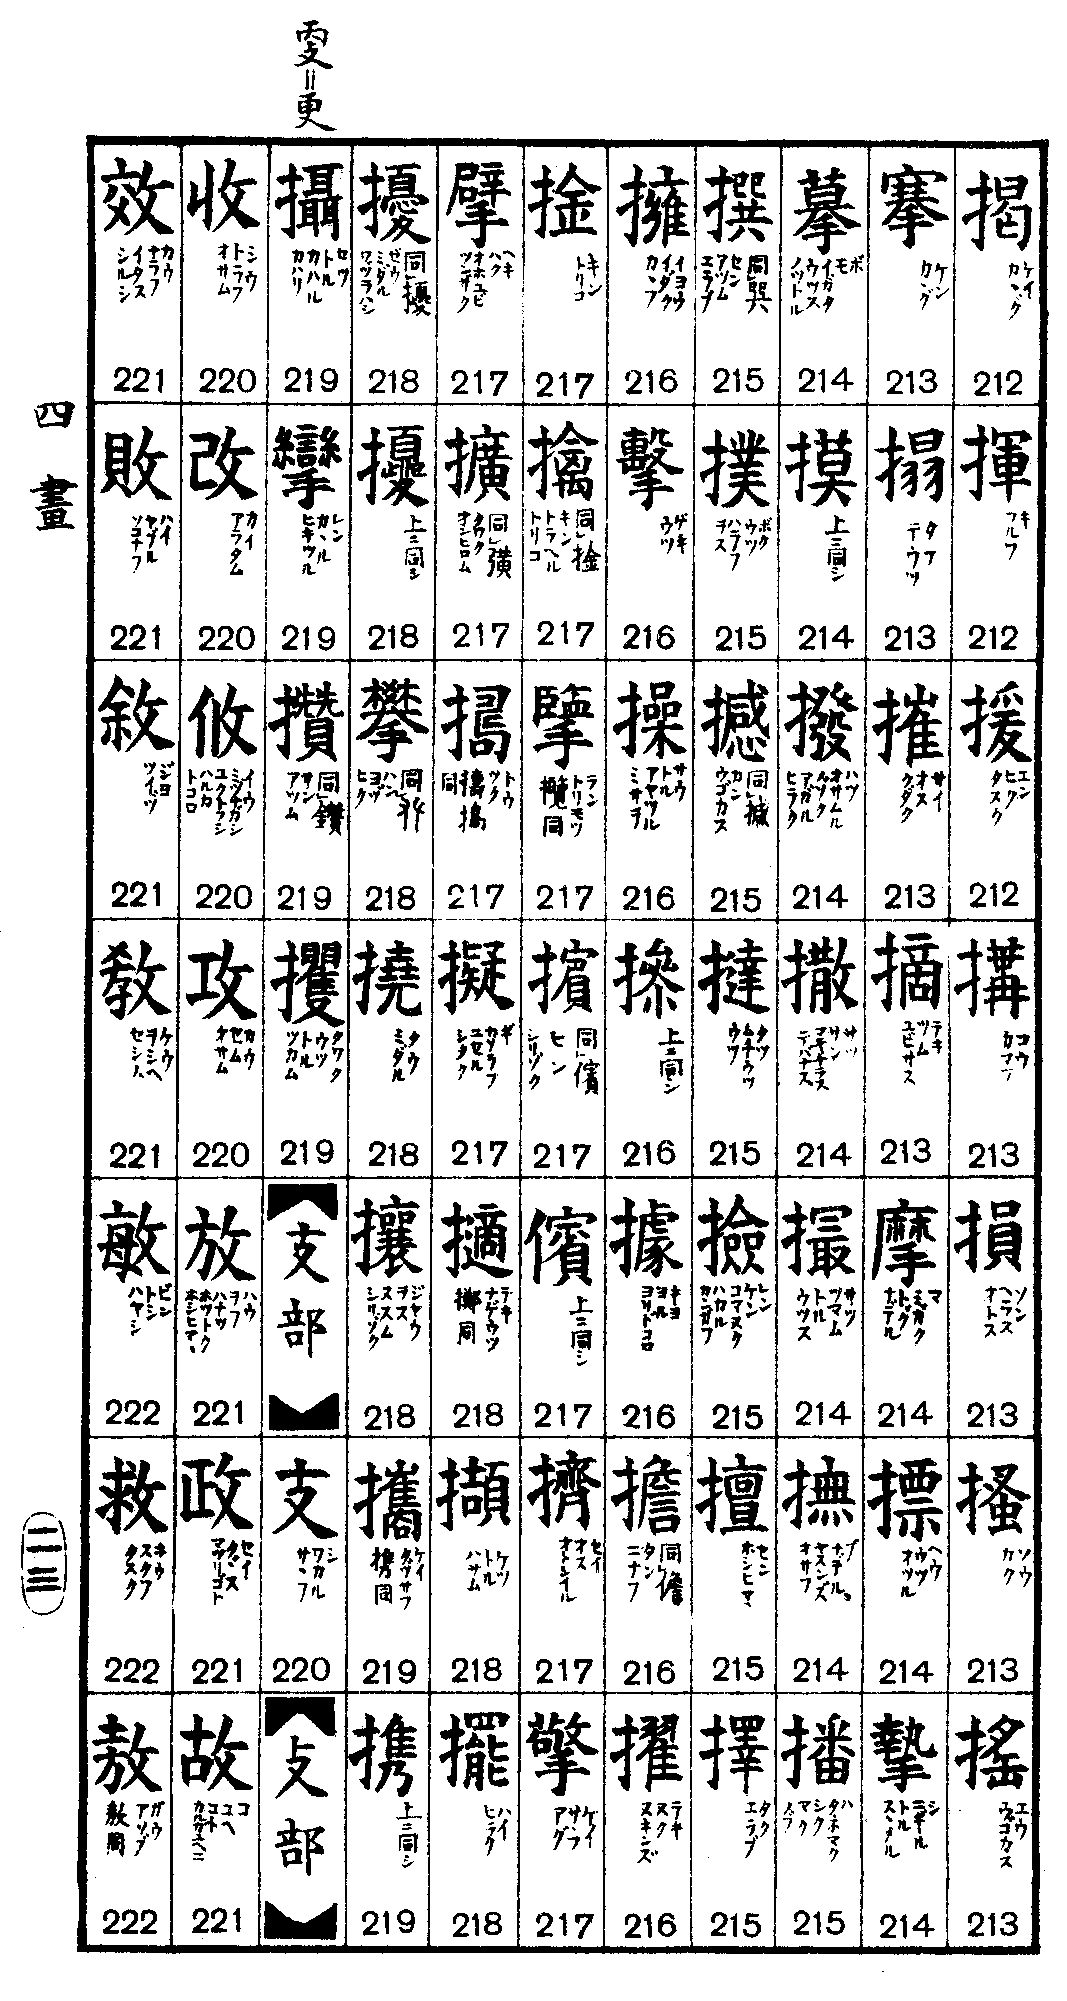 㪅=更
揭 ケイ カヽグ 212
揮 キ フルフ 212
援 エン ヒク タスク 212
搆 コウ カマフ 213
損 ソン ヘラス オトス 213
搔 ソウ カク 213
搖 エウ ウゴカス 213
搴 ケン カヽグ 213
搨 タフ テウツ 213
摧 サイ オス クダク 213
摘 テキ ツム ユビサス 213
摩 マ ミガク トグ ナデル 214
摽 ヘウ ウツ オツル 214
摯 シ ニギル トル スヽメル 214
摹 ボ モ イガタ ウツス ノツトル 214
摸 上ニ同シ 214
撥 ハツ オサムル ルツタ マガル ヒラク 214
撒 サツ サン マキチラス デバナス 214
撮 サツ ツマム トル ウツス 214
撫 ブ ナデル ヤスンズ オサフ 214
播 ハ タネマク シク マク 215
撰 同巽 セン アツム エラブ 215
撲 ボク ウツ ハラフ ヲス 215
撼 同揻 カン ウゴカス 215
撻 タツ ムチウツ ウツ 215
撿 レン ケン コマヌク ハカル カンガフ 215
擅 セン ホシヒマヽ 215
擇 タク エラブ 215
擁 イヨウ イダク カヽフ 216
擊 ゲキ ウツ 216
操 サウ トル アヤツル ミサヲ 216
摻 上ニ同シ 216
據 キヨ ヨル ヨリドコロ 216
擔 同儋 タン ニナフ 216
擢 テキ ヌク ヌキンズ 216
捦 キン トリコ 217
擒 同捦 キン トラヘル トリコ 217
擥 ラン トリモツ 攬同 217
擯 同儐 ヒン シリゾク 217
儐 上ニ同シ 217
擠 セイ オス オトシイル 217
擎 ケイ サヽフ アグ 217
擘 ヘキ ハク オホユビ ツンザク 217
擴 同彉 クワク オシヒロム 217
擣 トウ ツク 217
擬 ギ カゾラフ ユセル シタク 217
擿 テキ ナゲウツ 擲同 218
擷 ケツ トル ハサム 218
擺 ハイ ヒラク 218
擾 同擾 ゼウ ミダル ワヅラハシ 218
擾 上ニ同シ 218
攀 ハン ヨヅ ヒク 218
撓 タウ ミダル 218
攘 ジヤウ ヲス ススム シリゾク 218
攜 ケイ タヅサフ 携同 219
携 上ニ同シ 219
攝 セツ トル カハル カハリ 219
攣 レン カヽル ヒキツル 219
攢 同鑽 サン アツム 219
攫 クワク ウツ トル ツカム 219
支部
支 シ ワカル サヽフ 220
攴部
收 シウ トラフ オサム 220
改 カイ アラタム 220
攸 イウ ミヅナガシ ユクトラシ ハルカ トコロ 220
攻 カウ セム オサム 220
放 ハウ ヲフ ハナツ ホツトク ホシヒマヽ 221
政 セイ タダス マツリゴト 221
故 コ ユヘ コト カルガユヘニ 221
效 カウ ナラフ イタス シルシ 221
敗 ハイ ヤブル ソコナフ 221
敘 ジヨ ツイヅ 221
敎 ケウ ヲシヘ セシム 221
敏 ビン トシ ハヤシ 222
救 キウ スクフ タスク 222
敖 ガウ アソブ 敖同 222
四畫
二三